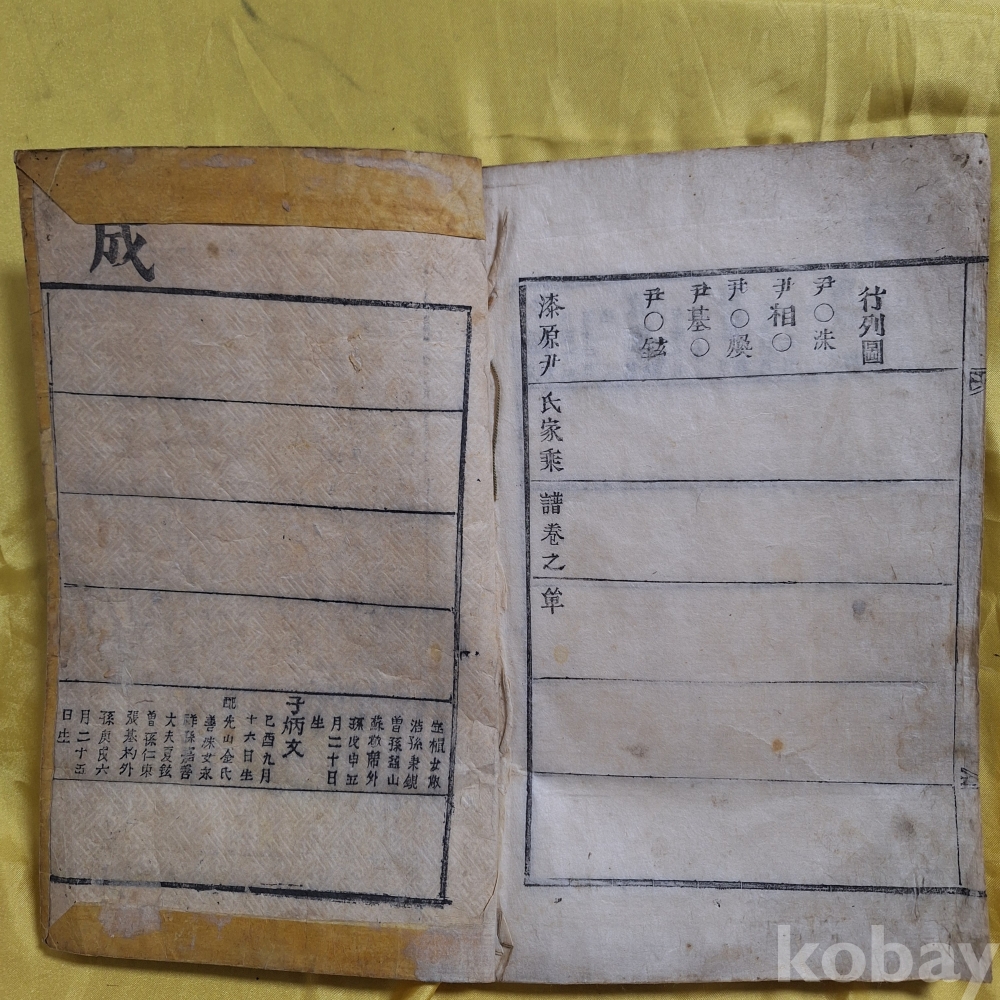 行列圖
尹○洙
尹相○
尹○煥
尹基○
尹○鉉
漆原尹氏家乘譜卷之單
成
曾孫益山
孫戊申五
月二十日
生
子炳文
己酉九月
十六日生
配先山金氏
善洙女永
祥孫嘉善
大夫夏鉉
曾孫仁東
張基杓外
孫庚戌六
月二十五
日生
kobay